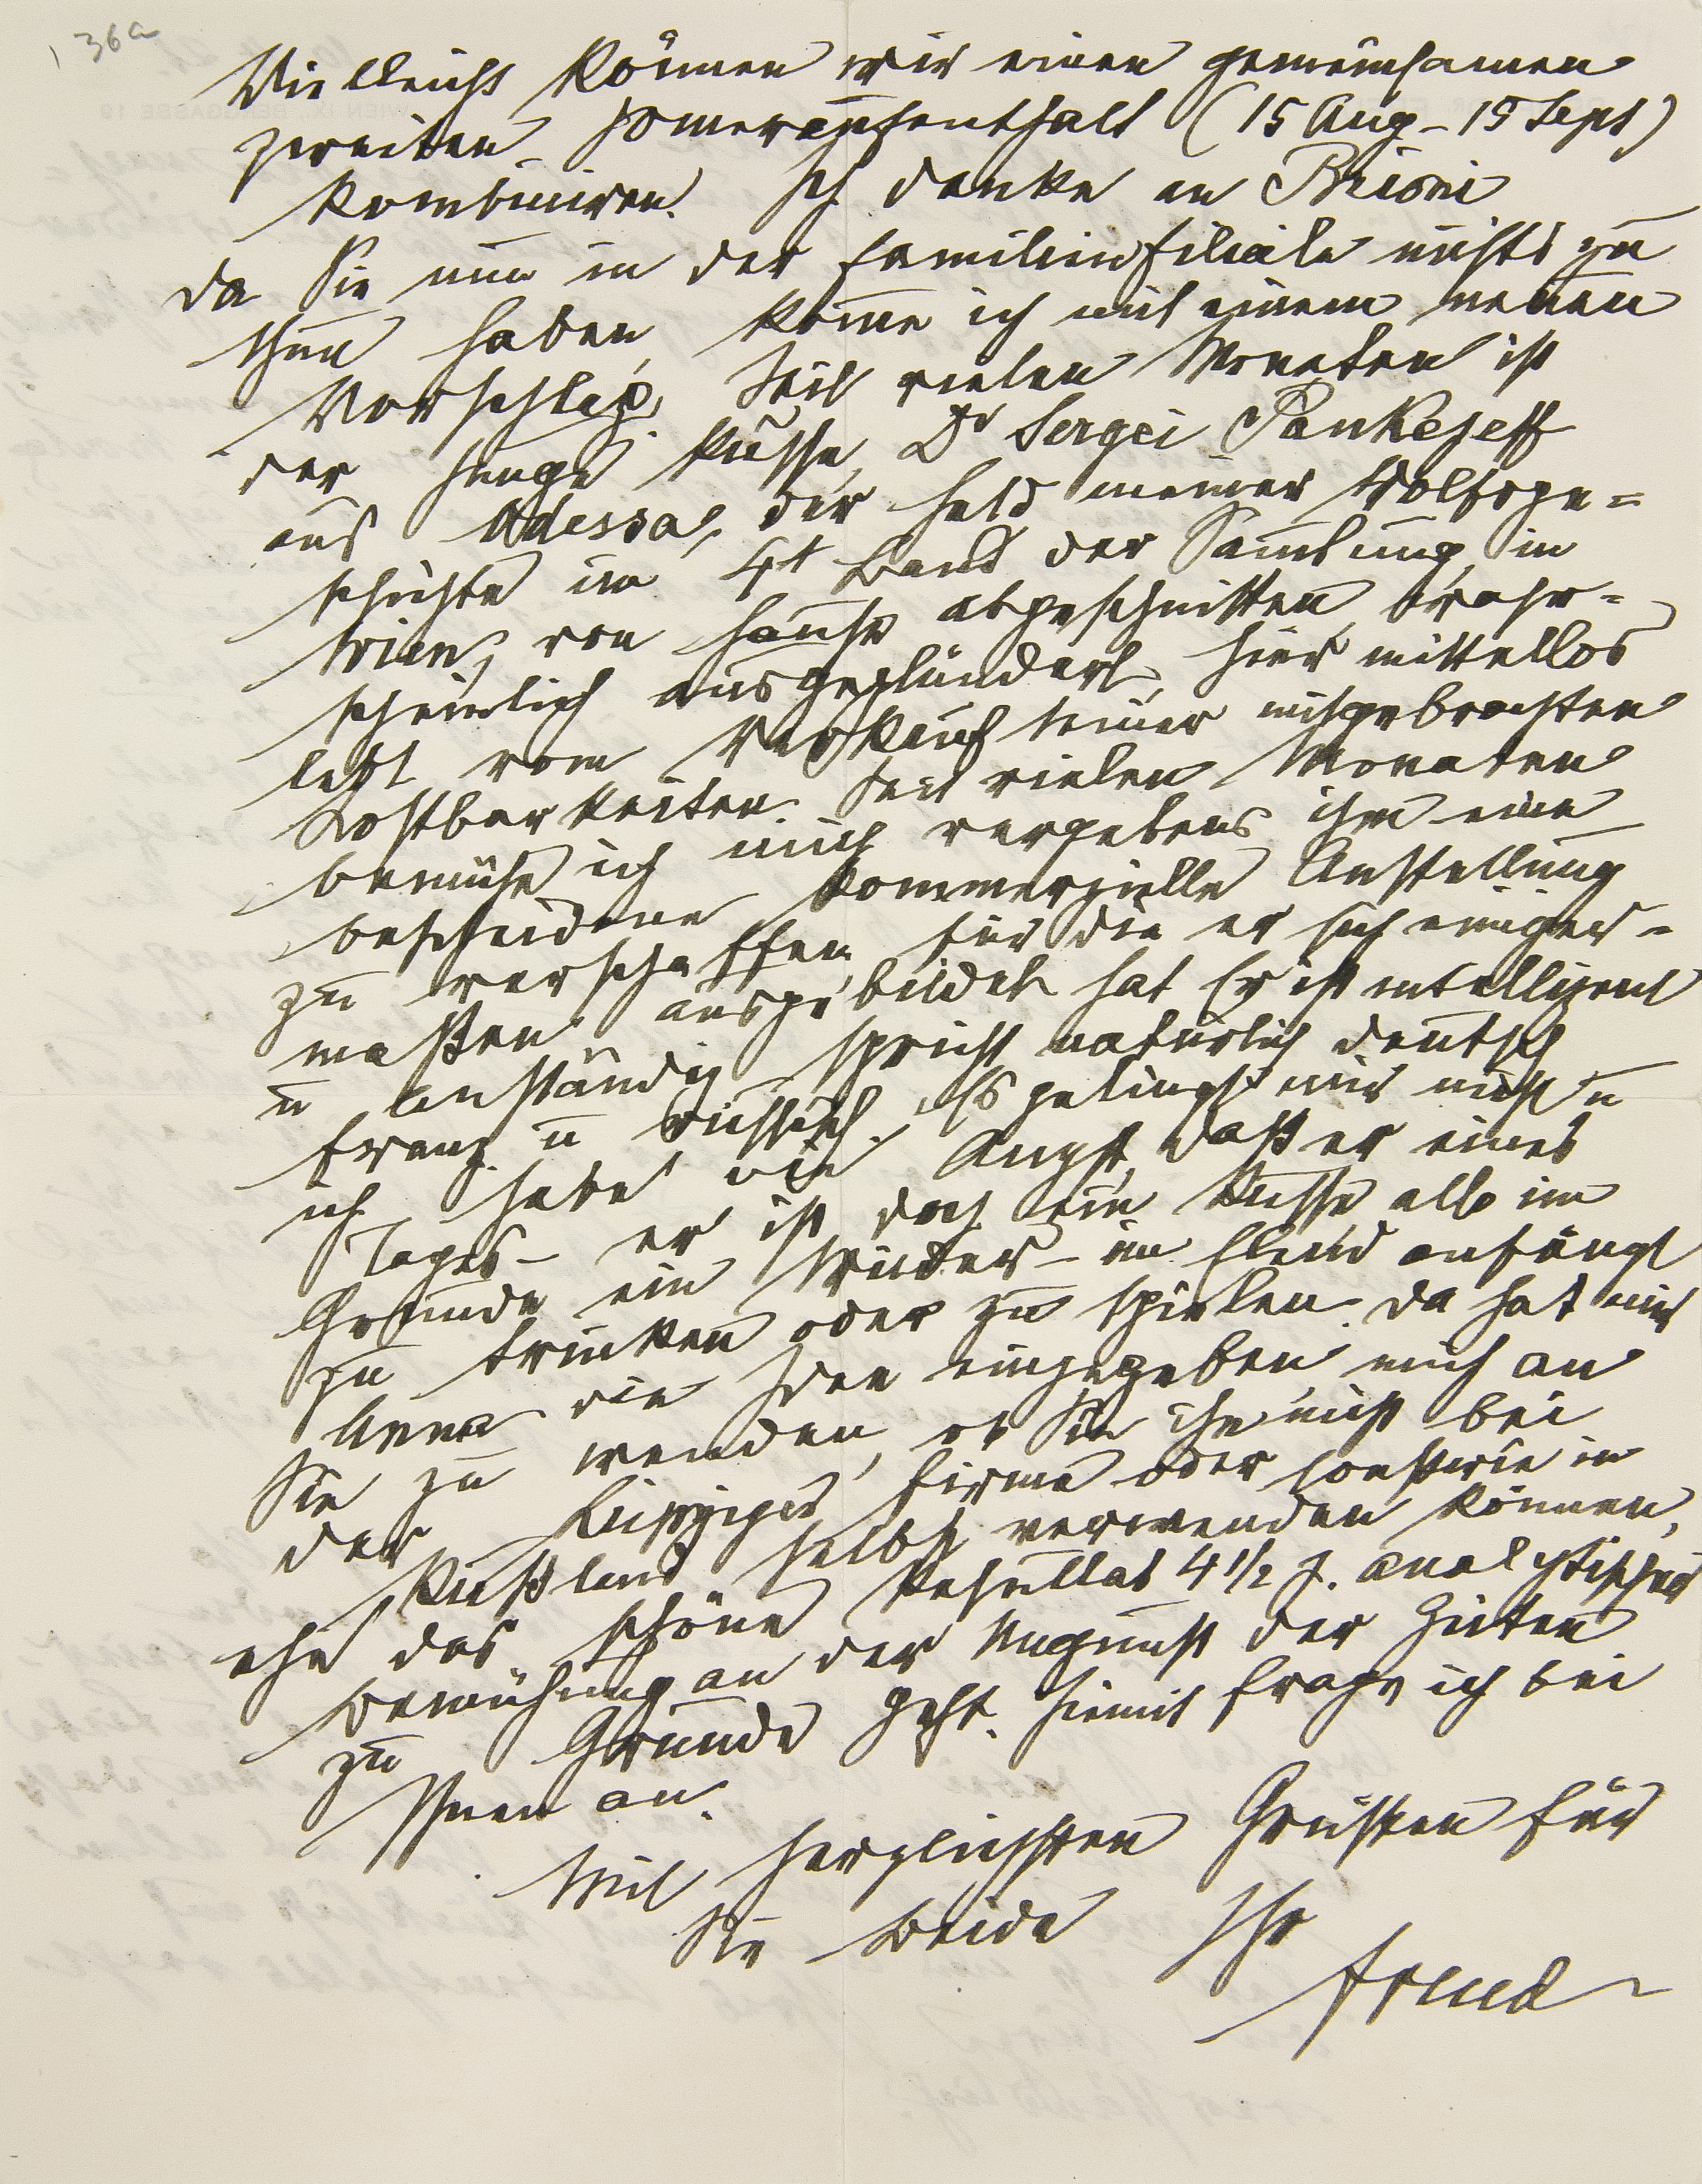 136a
Vielleicht können wir einen gemeinsamen
zweiten Someraufenthalt (15 Aug – 15 Sept)
kombiniren. Ich denke an Brioni
da Sie nun in der Familienfiliale nichts zu
thun haben, kom̄e ich mit einem neuen
Vorschlag. Seit vielen Monaten ist
der junge Russe, Dr Sergei Pankejeff
aus Odessa, der Held meiner Wolfsge=
schichte im 4t Band der Sam̄lung, in
Wien, von Hause abgeschnitten, wahr=
scheinlich ausgeplündert, hier mittellos
lebt vom Verkauf seiner mitgebrachten
Kostbarkeiten. Seit vielen Monaten
bemühe ich mich vergebens ihm eine
bescheidene kommerzielle Anstellung
zu verschaffen, für die er sich einiger=
maßen ausgebildet hat Er ist intelligent
u anständig, spricht natürlich deutsch
franz. u russisch. Es gelingt mir nicht u
ich habe die Angst, daß er eines
Tages – er ist doch ein Russe also im
Grunde ein – im Elend anfängt
zu trinken oder zu spielen. Da hat mir
Anna die Idee eingegeben mich an
Sie zu wenden, ob Sie ihn nicht bei
der Leipziger Firma oder sonstwie in
Rußland selbst verwenden können,
ehe das schöne Resultat 4 1/2 j. analytischer
Bemühung an der Ungunst der Zeiten
zu Grunde geht. Hiemit frage ich bei
Ihnen an.
Mit herzlichsten Grüßen für
Sie beide Ihr
Freud